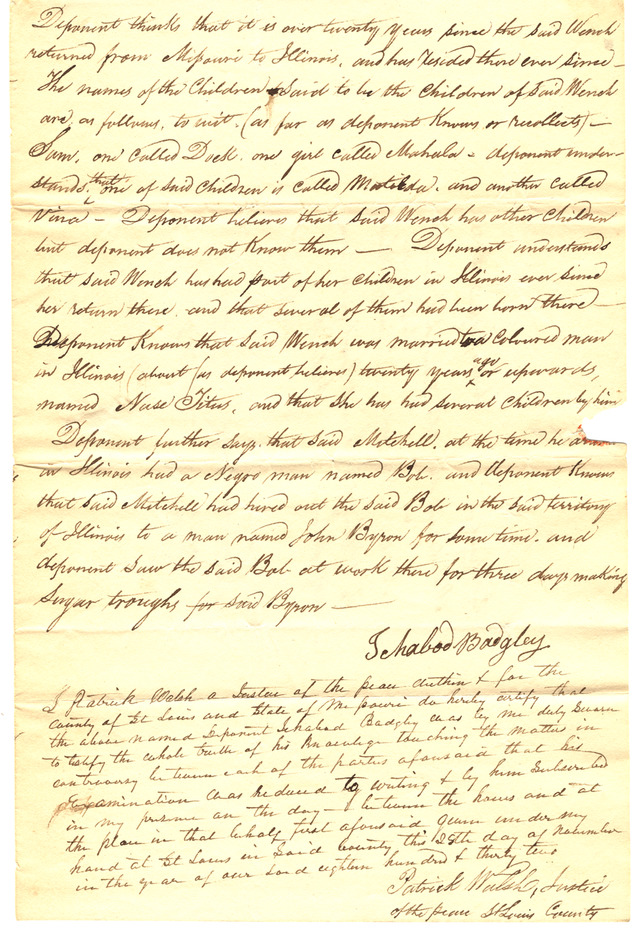 Deponent thinks that it is over twenty years since the said Wench
returned from Missouri to Illinois, and has resided there ever since —
The names of the Children said to be the children of said Wench
are, as follows, to wit. (as far as deponent Knows or recollects) —
Sam, one called Dock. one girl called Mahala – deponent under-
stands, that one of said children is called Matilda. and another called
Vina — Deponent believes that said Wench has other Children
but deponent does not Know them — Deponent understands
that said Wench has had part of her children in Illinois ever since
her return there. and that several of them had been born there —
Deponent Knows that said Wench was married to a Coloured man
in Illinois (about (as deponent believes) twenty years ago or upwards,
named Nase Titus, and that She has had several Children by him
Deponent further says. that said Mitchell. at the time he
in Illinois had a Negro man named Bob. and deponent Knows
that said Mitchell had hired out the said Bob in the said territory
of Illinois to a man named John Byron for some time. and
deponent saw the said Bob at work there for three days making
Sugar troughs for said Byron —
Ichabod Badgley
I Patrick Walsh a Justice of the peace within & for the
County of St Louis and State of Missouri do hereby certify that
the above named Deponent Ichabod Badgley was by me duly Sworn
to testify the whole truth of his Knowledge touching the matter in
controversy between each of the parties aforesaid that his
examination was reduced to writing & by him Subscribed
in my presence on the day — between the hours and at
the place in that behalf first aforesaid Given under my
hand at St Louis in Said County this 28th day of November
in the year of our Lord eighteen hundred & thirty two
Patrick Walsh, Justice
of the peace St Louis County